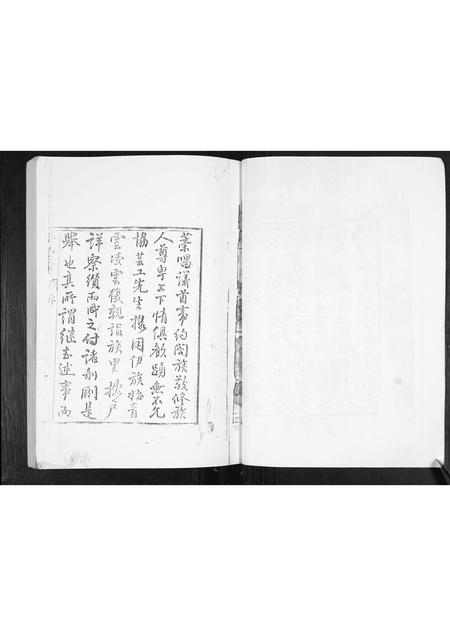 葉唱議首事約閤族敬修族
人尊卑上下情俱歡頭無不允
協芸工先生據因伊族始青
雲凌雲後親詣族里挨户
詳察纘而成之付諸剞劂是
舉也真所謂繼志述事而